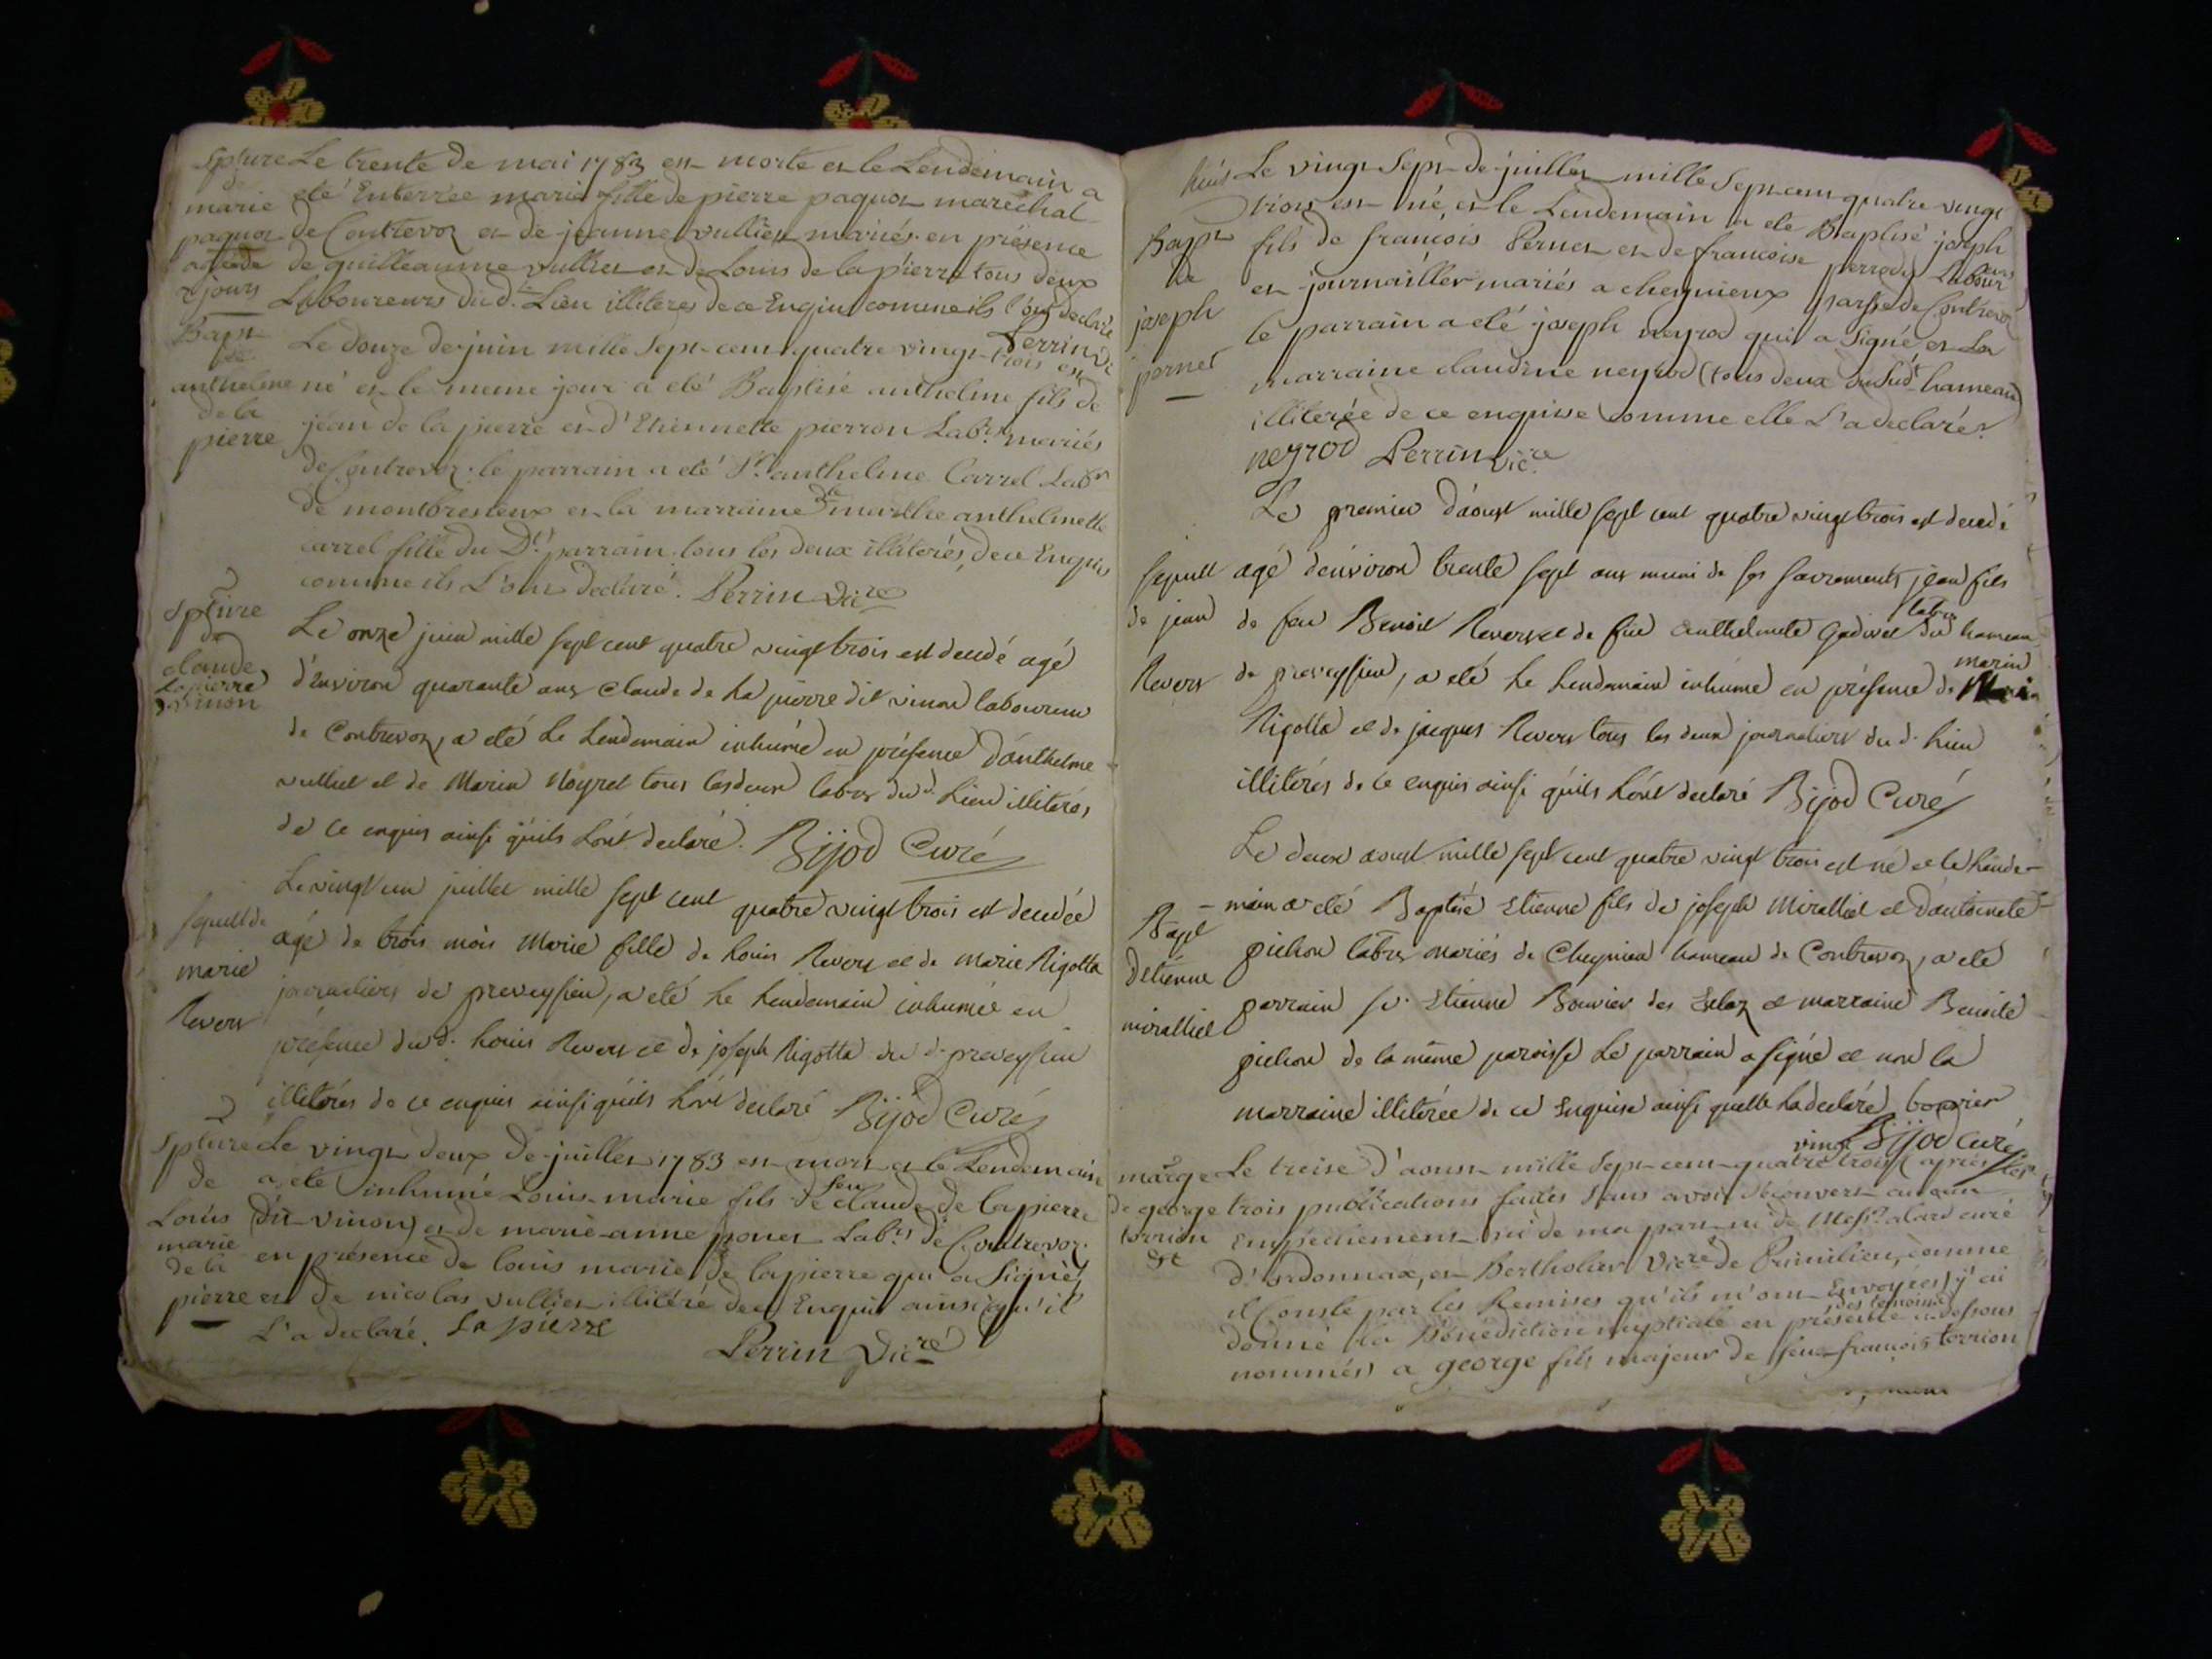 Spture Le trente de mai 1783 est morte et le Lendemain a
de
marie eté Enterrée marie fille de pierre paquot maréchal
paquot de Contrevoz et de jeanne vulliet mariés en présence
agée de de guilleaume vulliet et de Louis de la pierre tous deux
jours Laboureurs dud.t Lieu illiteres de ce Enquis comme ils l'ont declaré
Perrin Vic
Bapt Le Douze de juin mille Sept-cent quatre vingt-trois est
de
anthelme né et le meme jour a eté Baptisé anthelme fils de
de la
pierre jean de la pierre et d'Etiennette pierron Lab.rs mariés
de Contrevoz. le parrain a eté S.r anthelme Carrel Lab.r
de montbresieux et la marraine D.lle marthe anthelmette
carrel fille du D.t parrain tous les deux illiterés, de ce Enquis
comme ils L'ont Declaré. Perrin Vic.re
Spture Le onze juin mille sept cent quatre vingt trois est decedé agé
de
claude d'Environ quarante ans Claude de La pierre dit vinon laboureur
Lapierre
d. vinon
de Contrevoz, a eté Le Lendemain inhumé en présence d'anthelme
vulliet et de Marin Noyret tous les deux labrs dud. Lieu illiterés
de ce enquis ainsi qu'ils L'ont declaré. Bijod Curé
Le vingt un juillet mille sept cent quatre vingt trois est decedée
sepult de agé de trois mois Marie fille de Louis Revers et de Marie Rigotta
marie journaliers de preveyssieu, a eté Le Lendemain inhumée en
Revers présence dud. Louis Revers et de joseph Rigotta du d. preveyssieu
illiterés de ce enquis ainsi qu'ils L'ont declaré Bijod Curé
Spture Le vingt deux de juillet 1783 est mort et le Lendemain
de a eté inhumé Louis-marie fils de feu claude de la pierre
Louis (dit vinon) et de marie-anne ponet Lab.rs de Contrevoz.
marie en présence de louis marie de la pierre qui a Signé,
de la
pierre et de nicolas vulliet illitéré de ce Enquis ainsi qu'il
L'a declaré. La pierre
Perrin Vic.re
Le vingt Sept-de-juillet mille Sept-cent quatre vingt
trois est né, et le Lendemain a eté Baptisé joseph
Bapt fils de francois Pernet et de francoise perrod Labours
de et journaillers mariés a cheynieux parsse de Contrevoz
joseph le parrain a eté joseph neyrod qui a Signé et La
pernet marraine claudine neyrod (tous deux dud.t hameau)
illiterée de ce enquise comme elle L'a declaré.
neyrod Perrin vic.re
Le premier d'aoust mille sept cent quatre vingt trois est decedé
sepult agé d'environ trente sept ans muni de ses sacrements jean fils
de jean de feu Benoit Revers et de fue anthelmete Godivet labrs du hameau
Revers de preveyssieu, a eté Le Lendemain inhumé en présence de marin
Rigotta et de jacques Revers tous les deux journaliers du d. Lieu
illiterés de ce enquis ainsi qu'ils L'ont declaré Bijod Curé
Le deux aoust mille sept cent quatre vingt trois est né et le Lende-
-main a eté Baptisé Etienne fils de joseph Miralliet et d'antoinete
Bapt pichon labrs mariés de Cheynieu hameau de Contrevoz, a eté
d'etienne parrain sr. Etienne Bouvier des Eslaz et marraine Benoite
miralliet pichon de la même paroisse Le parrain a signé et non la
marraine illiterée de ce Enquise ainsi quelle La declaré bovvier
Bijod curé
marge Le treise d'aoust mille Sept-cent-quatre vingt trois après les
de george trois publications faites sans avoir découvert aucun
torrion Empêchement ni de ma part ni de Mess.r alard curé
&c
d'ordonnax, et Bertholier Vic.re de Primilieu, comme
il Conste par les Remises qu'ils m'ont Envoyées j'ai
donné la Bénédiction nuptiale en présence des temoins cidessous
nommés a george fils majeur de feu francois torrion